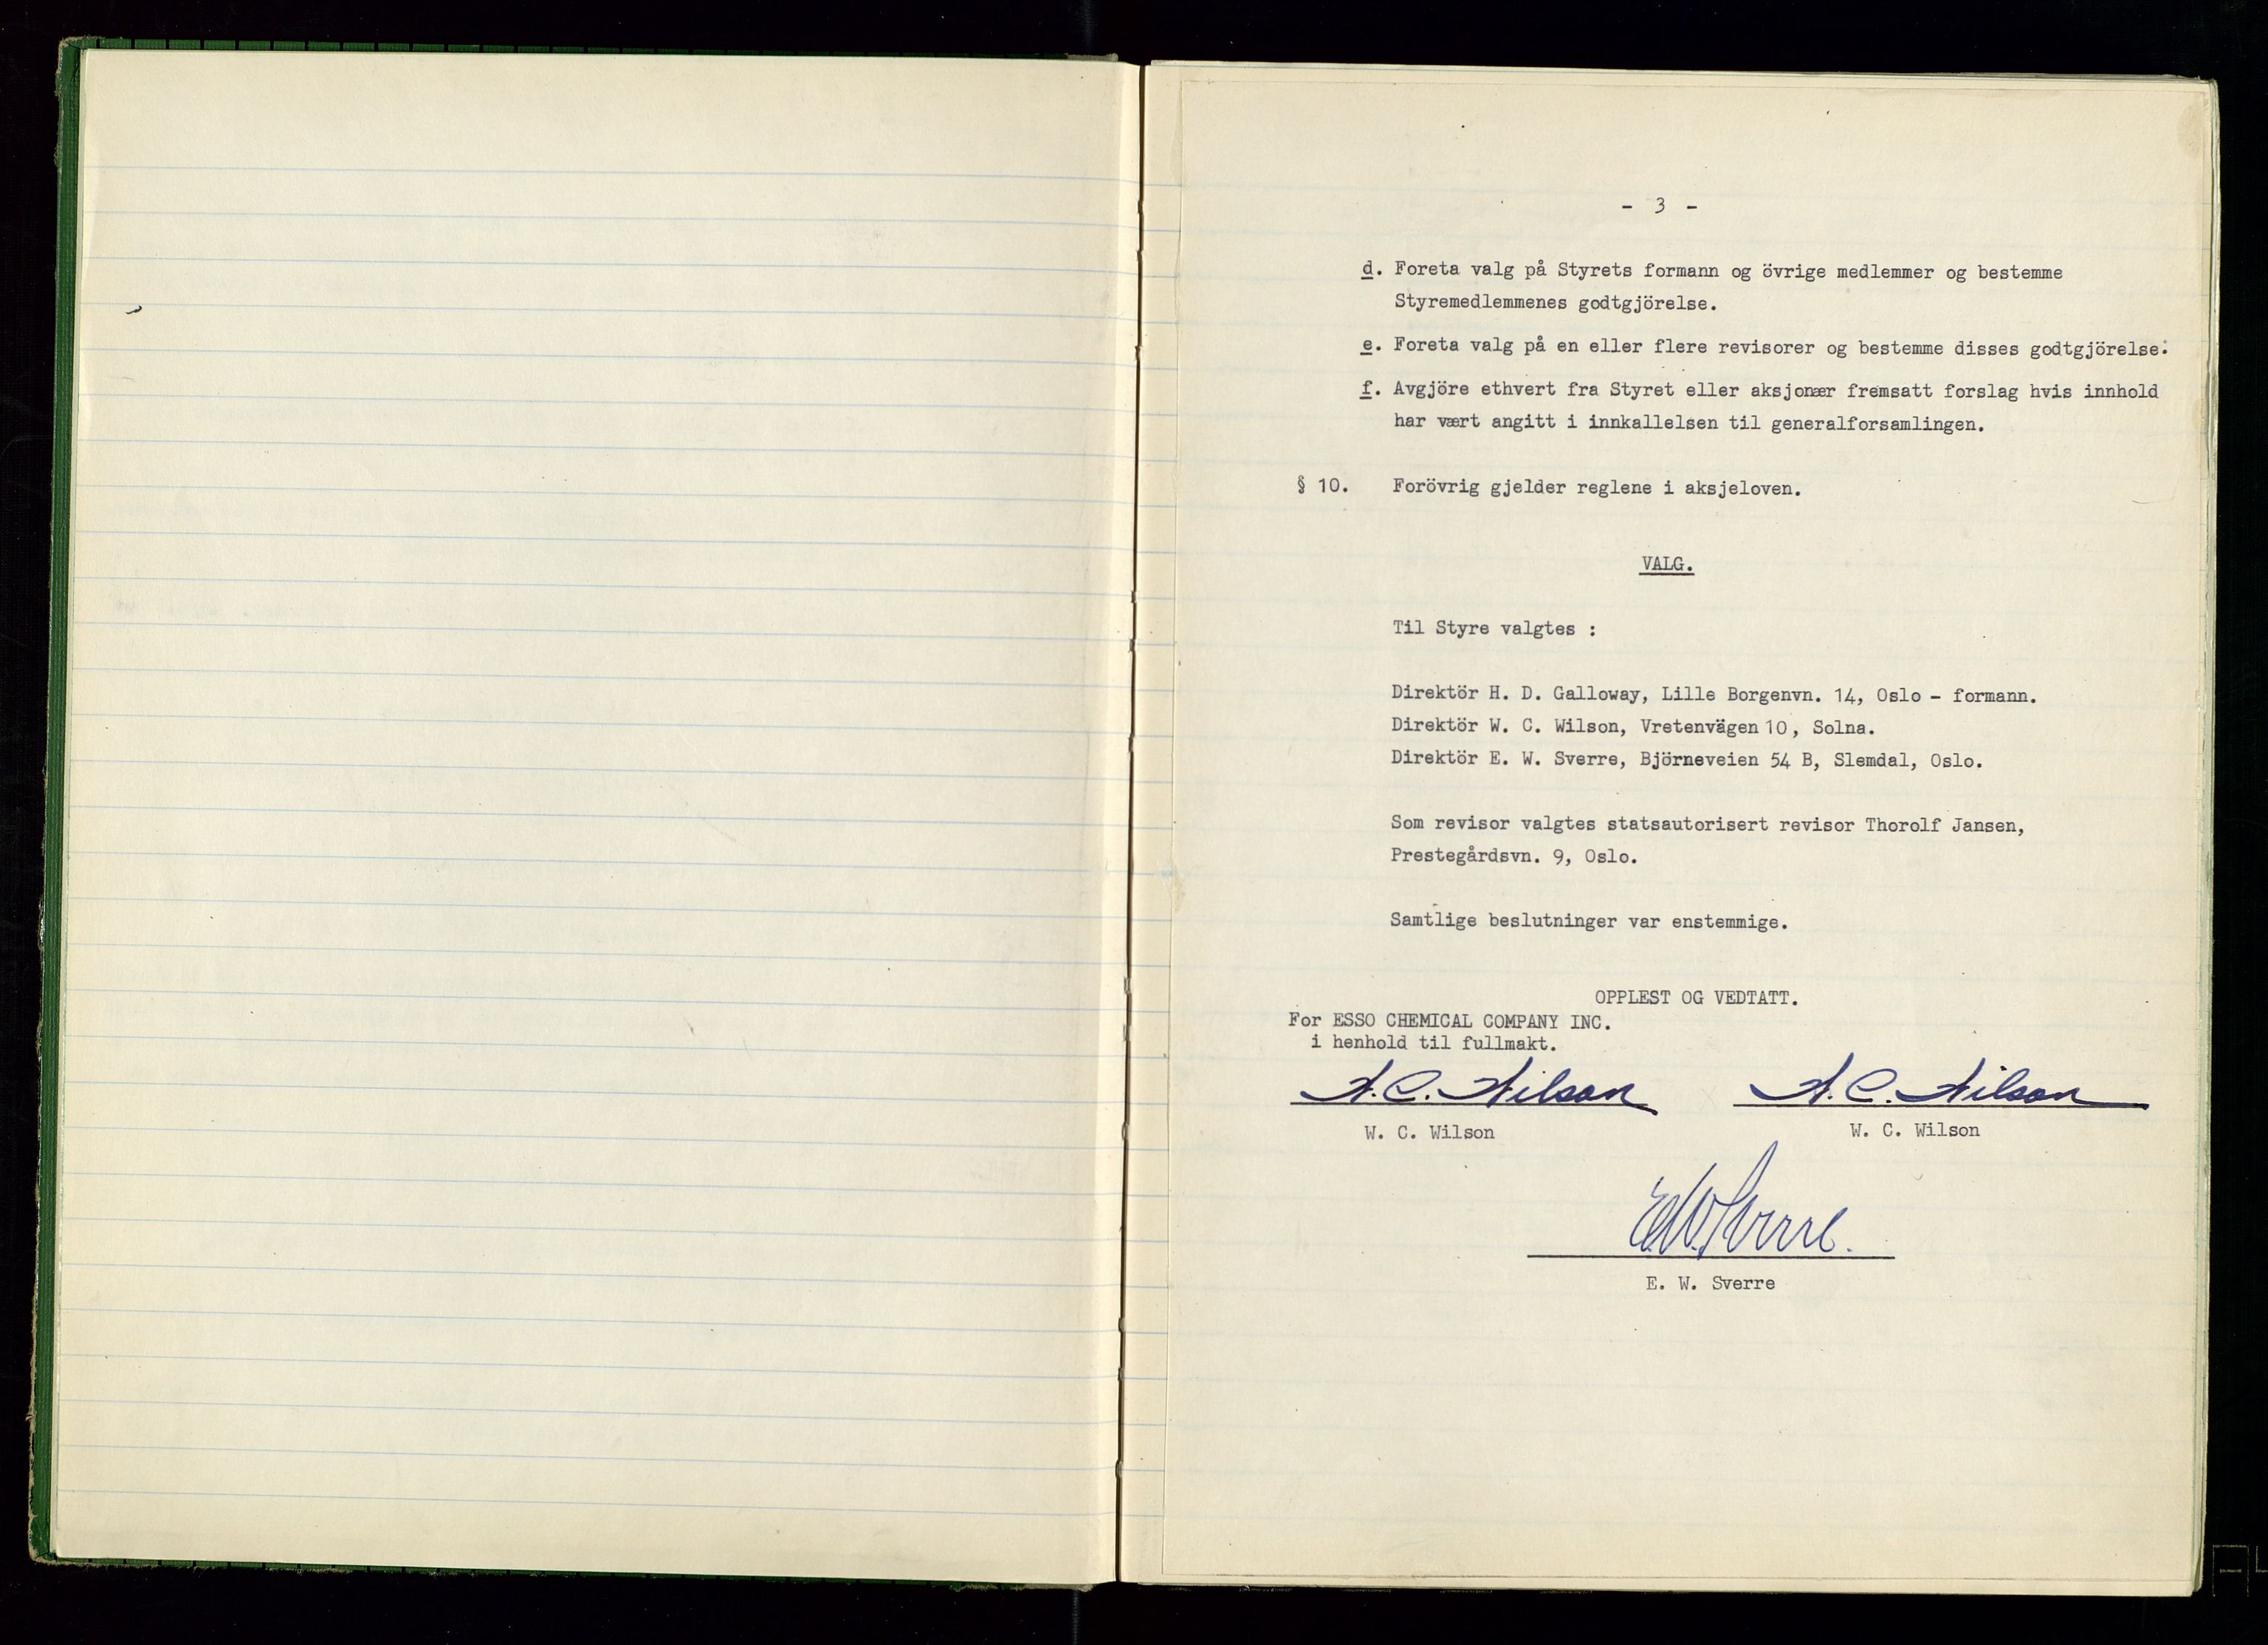 - 3 -
d. Foreta valg på Styrets formann og övrige medlemmer og bestemme
Styremedlemmenes godtgjörelse.
e. Foreta valg på en eller flere revisorer og bestemme disses godtgjörelse.
f. Avgjöre ethvert fra Styret eller aksjonær fremsatt forslag hvis innhold
har vært angitt i innkallelsen til generalforsamlingen.
§ 10. Forövrig gjelder reglene i aksjeloven.
VALG.
Til Styre valgtes :
Direktör H. D. Galloway, Lille Borgenvn. 14, Oslo - formann.
Direktör W. C. Wilson, Vretenvägen 10, Solna.
Direktör E. W. Sverre, Björneveien 54 B, Slemdal, Oslo.
Som revisor valgtes statsautorisert revisor Thorolf Jansen,
Prestegårdsvn. 9, Oslo.
Samtlige beslutninger var enstemmige.
OPPLEST OG VEDTATT.
For ESSO CHEMICAL COMPANY INC.
i henhold til fullmakt.
W. C. Wilson W. C. Wilson
W. C. Wilson W. C. Wilson
E. W. Sverre.
E. W. Sverre